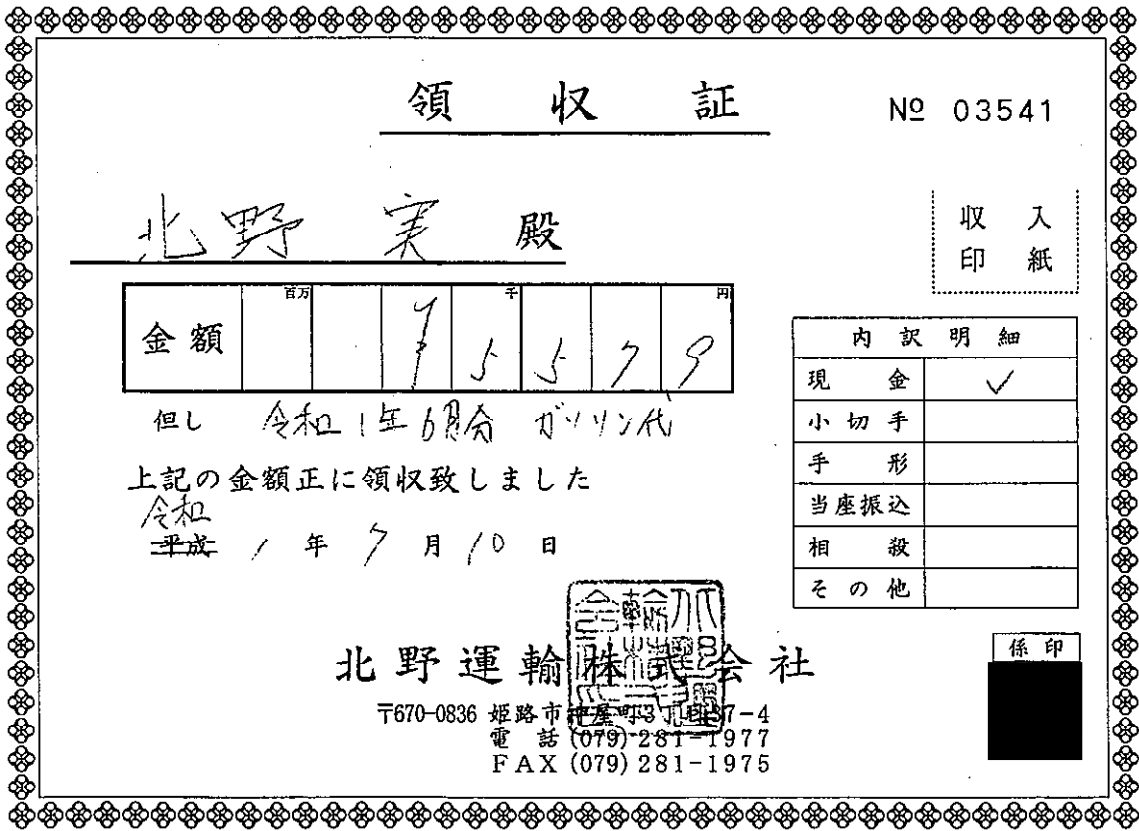 領収証
№ 03541
北野 実 殿
収入
印紙
金額 百万 千 円
¥ 5 5 7 9
但し 令和1年6月分 ガソリン代
上記の金額正に領収致しました
令和
平成 1年7月10日
内訳明細
現金 ✓
小切手
手形
当座振込
相殺
その他
係印
北野運輸株式会社
〒670-0836 姫路市 町3丁目37-4
電話(079)281-1977
FAX(079)281-1975